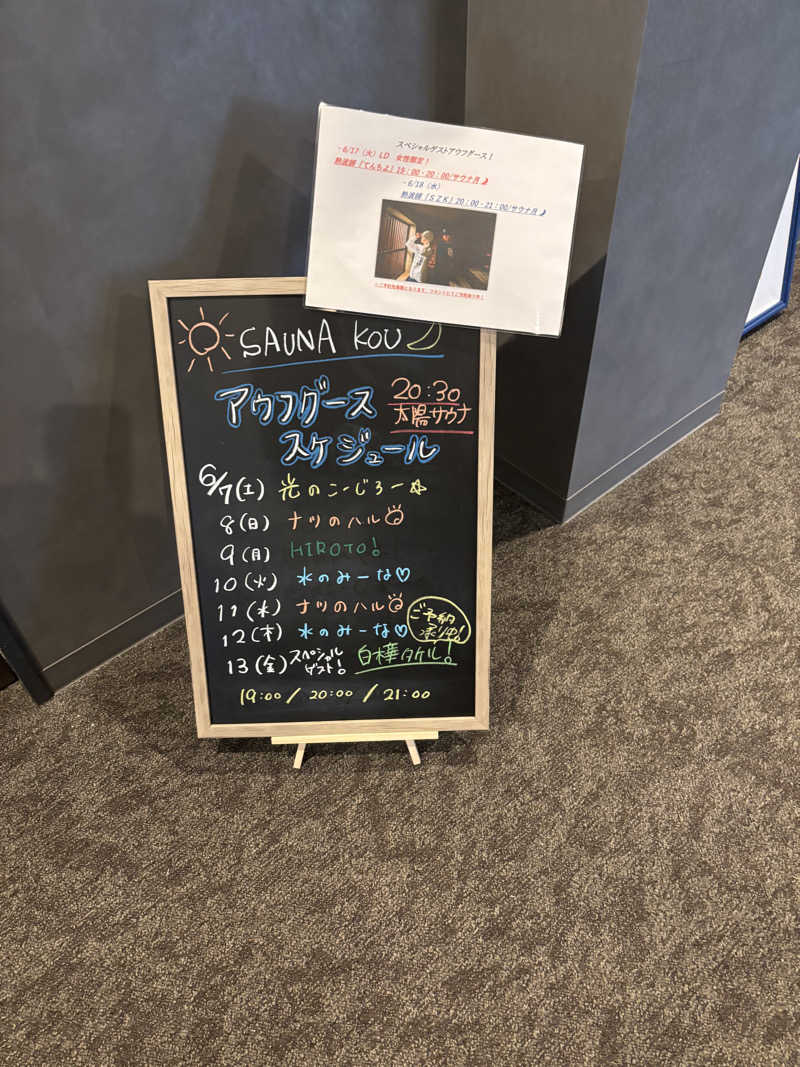 スペシャルゲストアウフグース！
・6/17（火）LD 女性限定！
熱波師『てんちよ』15：00・20：00/サウナ月🌙
・6/18（水）
熱波師『SZK』20：00・21：00/サウナ月🌙
SAUNA KOU
アウフグース
スケジュール
20:30
太陽サウナ
6/7(土) 光のこーじろー☆
8(日) ナツのハル
9(月) HIROTO!
10(火) 水のみーな♡
11(水) ナツのハル
12(木) 水のみーな♡
ご予約
承り中!
13(金) スペシャル
ゲスト! 白樺タケル!
19:00 / 20:00 / 21:00